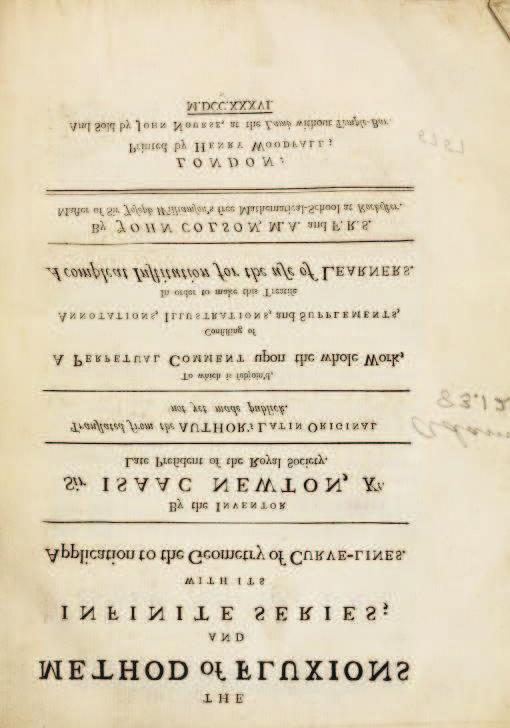 THE
METHOD of FLUXIONS
AND
INFINITE SERIES;
WITH ITS
Application to the Geometry of CURVE-LINES.
By the INVENTOR
Sir ISAAC NEWTON, Kt.
Late President of the Royal Society.
Translated from the AUTHOR's LATIN ORIGINAL
not yet made publick.
To which is subjoin'd,
A PERPETUAL COMMENT upon the whole Work,
Consisting of
ANNOTATIONS, ILLUSTRATIONS, and SUPPLEMENTS,
In order to make this Treatise
A compleat Institution for the use of LEARNERS.
By JOHN COLSON, M.A. and F.R.S.
Master of Sir Joseph Williamson's free Mathematical-School at Rochester.
LONDON:
Printed by HENRY WOODFALL;
And Sold by JOHN NOURSE, at the Lamb without Temple-Bar.
M.DCC.XXXVI.
Adam
83.12